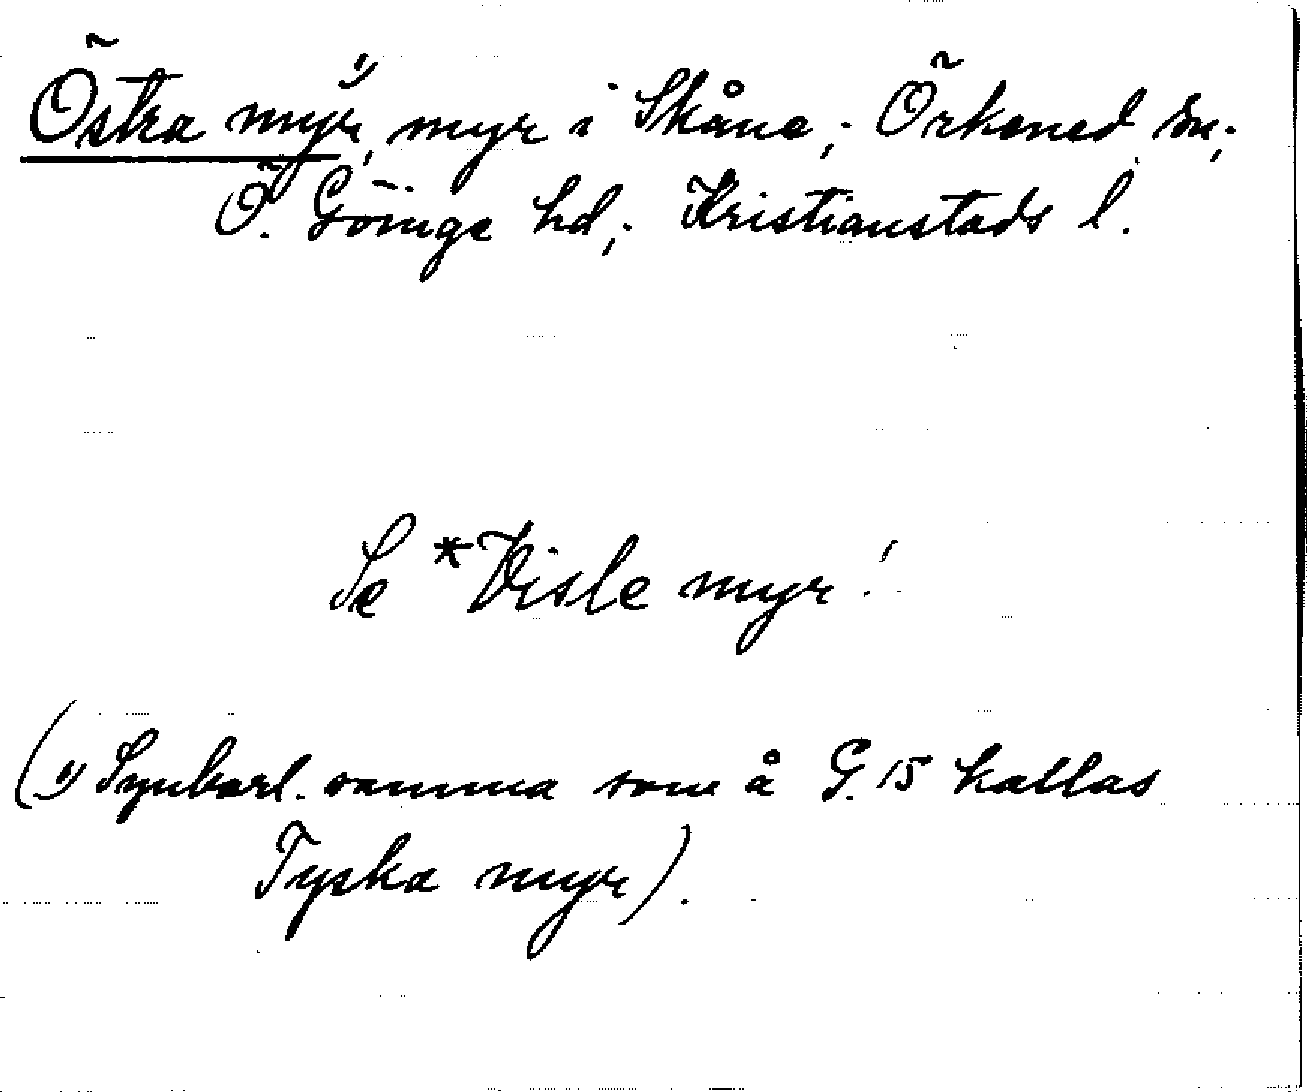 Östra myr¹⁾, myr i Skåne; Örkened sn;
Ö. Göinge hd; Kristianstads l.
Se *Visle myr!
(¹⁾ Synbarl. samma som å G. 15 kallas
Tyska myr).